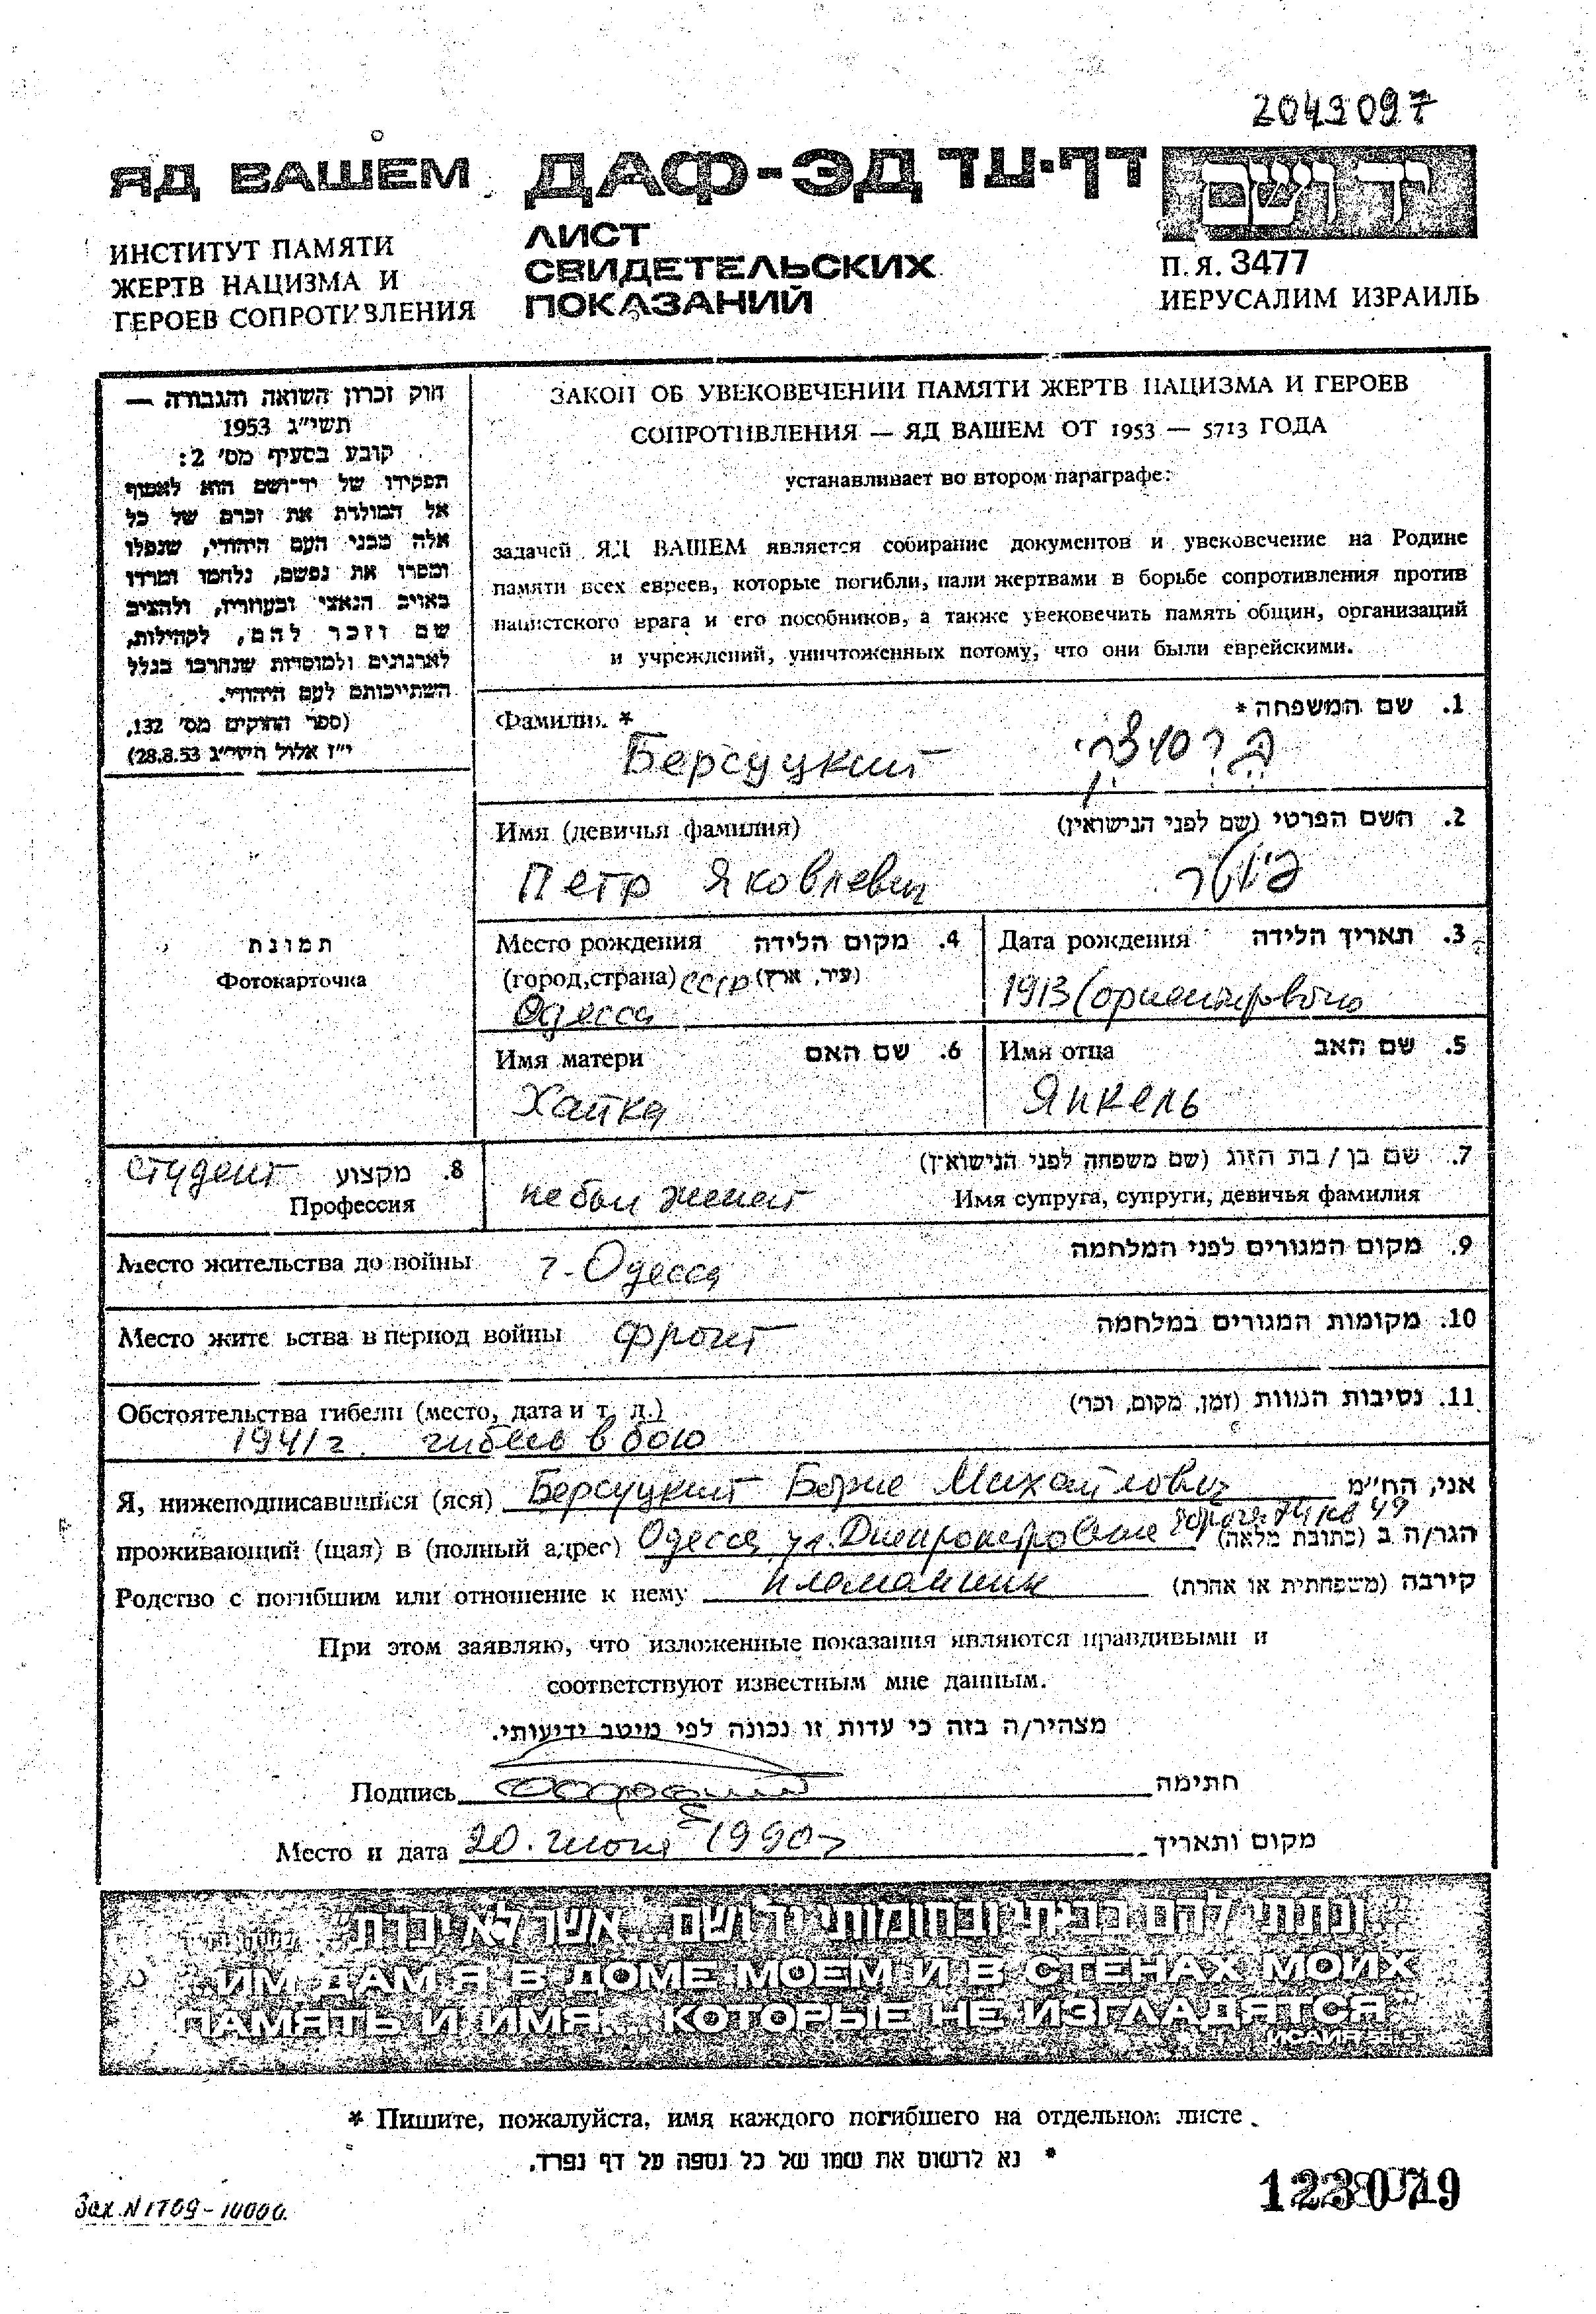 2049097
ЯД ВАШЕМ ДАФ-ЭД דף-עד יד ושם
ИНСТИТУТ ПАМЯТИ
ЖЕРТВ НАЦИЗМА И
ГЕРОЕВ СОПРОТИВЛЕНИЯ
ЛИСТ
СВИДЕТЕЛЬСКИХ
ПОКАЗАНИЙ
П.Я. 3477
ИЕРУСАЛИМ ИЗРАИЛЬ
חוק זכרון השואה והגבורה —
תשי"ג 1953
קובע בסעיף מס' 2:
תפקידו של יד־ושם הוא לאסוף
אל המולדת את זכרם של כל
אלה מבני העם היהודי, שנפלו
ומסרו את נפשם, נלחמו ומרדו
באויב הנאצי ובעוזריו, ולהציב
שם וזכר להם, לקהילות,
לארגונים ולמוסדות שנחרבו בגלל
השתייכותם לעם היהודי.
(ספר החוקים מס' 132,
י"ז אלול תשי"ג 28.8.53)
ЗАКОН ОБ УВЕКОВЕЧЕНИИ ПАМЯТИ ЖЕРТВ НАЦИЗМА И ГЕРОЕВ
СОПРОТИВЛЕНИЯ — ЯД ВАШЕМ ОТ 1953 — 5713 ГОДА
устанавливает во втором параграфе:
задачей ЯД ВАШЕМ является собирание документов и увековечение на Родине
памяти всех евреев, которые погибли, пали жертвами в борьбе сопротивления против
нацистского врага и его пособников, а также увековечить память общин, организаций
и учреждений, уничтоженных потому, что они были еврейскими.
Фамилия * 1. שם המשפחה *
Берсуцкий ברסוצקי
Имя (девичья фамилия) 2. השם הפרטי (שם לפני הנישואין)
Петр Яковлевич פיוטר
Место рождения 4. מקום הלידה
(город, страна) СССР (עיר, ארץ)
Одесса
Дата рождения 3. תאריך הלידה
1913 (ориентировочно
Имя матери 6. שם האם
Хайка
Имя отца 5. שם האב
Янкель
תמונה
Фотокарточка
студент 8. מקצוע
Профессия
7. שם בן / בת הזוג (שם משפחה לפני הנישואין)
не был женат Имя супруга, супруги, девичья фамилия
Место жительства до войны г. Одесса 9. מקום המגורים לפני המלחמה
Место жите ьства в период войны фронт 10. מקומות המגורים במלחמה
Обстоятельства гибели (место, дата и т. д.) 11. נסיבות המוות (זמן, מקום, וכו')
1941 г. гибель в бою
Я, нижеподписавшийся (яся) Берсуцкий Борис Михайлович אני, הח"מ
проживающий (щая) в (полный адрес) Одесса, ул. Днепропетровская дорога 74 кв 49 הגר/ה ב (כתובת מלאה)
Родство с погибшим или отношение к нему племянник קירבה (משפחתית או אחרת)
При этом заявляю, что изложенные показания являются правдивыми и
соответствуют известным мне данным.
מצהיר/ה בזה כי עדות זו נכונה לפי מיטב ידיעותי.
Подпись חתימה
Место и дата 20. июня 1990 г מקום ותאריך
"ונתתי להם בביתי ובחומותי יד ושם... אשר לא יכרת"
"...ИМ ДАМ Я В ДОМЕ МОЕМ И В СТЕНАХ МОИХ
ПАМЯТЬ И ИМЯ... КОТОРЫЕ НЕ ИЗГЛАДЯТСЯ."
ИСАИЯ 56, 5
* Пишите, пожалуйста, имя каждого погибшего на отдельном листе.
* נא לרשום את שמו של כל נספה על דף נפרד.
Зак. N 1709 - 10000.